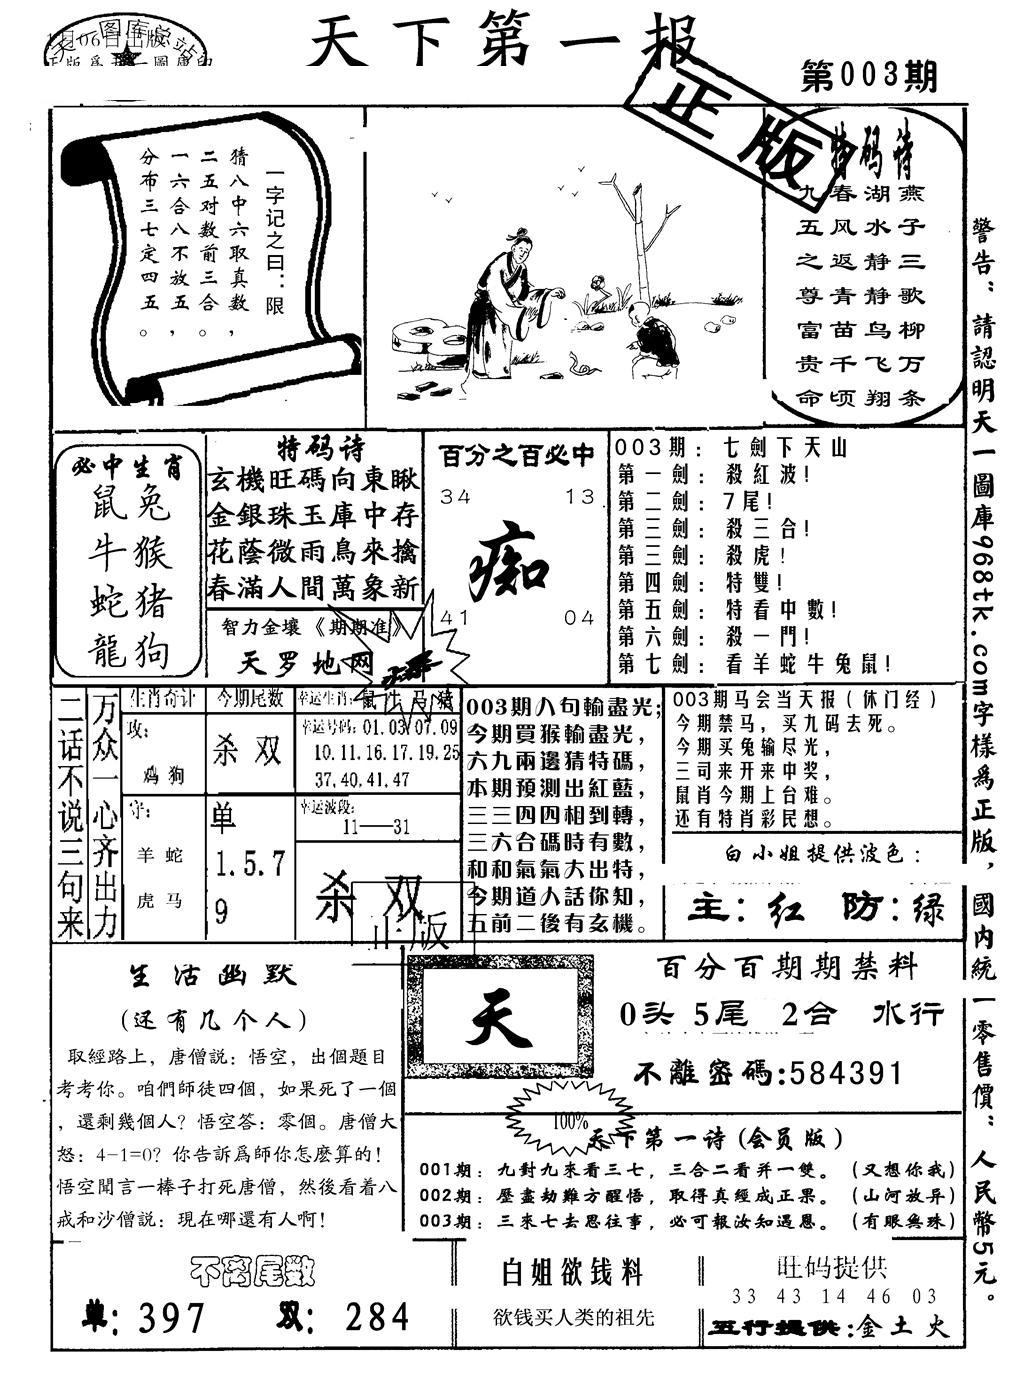 天下第一报
第003期
正版
一字记之曰：限
猜八中六取真数，
二五对数前三合。
一六合八不放五，
分布三七定四五。
特码诗
燕子三歌柳万条
湖水静静鸟飞翔
春风返青苗千顷
九五之尊富贵命
警告：請認明天一圖庫968tk.com字樣爲正版，國内統一零售價：人民幣5元。
必中生肖
鼠兔
牛猴
蛇猪
龍狗
特码诗
玄機旺碼向東瞅
金銀珠玉庫中存
花蔭微雨鳥來擒
春滿人間萬象新
智力金壤《期期准》
天罗地网
百分之百必中
34 13
痴
41 04
003期：七劍下天山
第一劍：殺紅波！
第二劍：7尾！
第三劍：殺三合！
第三劍：殺虎！
第四劍：特雙！
第五劍：特看中數！
第六劍：殺一門！
第七劍：看羊蛇牛兔鼠！
万众一心齐出力
二话不说三句来
生肖奇计
攻：
鸡狗
守：
羊蛇
虎马
今期尾数
杀双
单
1.5.7
9
幸运生肖：鼠牛马猪
幸运号码：01.03.07.09
10.11.16.17.19.25
37,40.41.47
幸运波段：
11——31
杀双
正版
003期八句輸盡光；
今期買猴輸盡光，
六九兩邊猜特碼，
本期預測出紅藍，
三三四四相到轉，
三六合碼時有數，
和和氣氣大出特，
今期道人話你知，
五前二後有玄機。
003期马会当天报（休门经）
今期禁马，买九码去死。
今期买兔输尽光，
三司来开来中奖，
鼠肖今期上台难。
还有特肖彩民想。
白小姐提供波色：
主：红 防：绿
生活幽默
（还有几个人）
取經路上，唐僧説：悟空，出個題目
考考你。咱們師徒四個，如果死了一個
，還剩幾個人？悟空答：零個。唐僧大
怒：4-1=0？你告訴爲師你怎麽算的！
悟空聞言一棒子打死唐僧，然後看着八
戒和沙僧説：現在哪還有人啊！
天
百分百期期禁料
0头 5尾 2合 水行
不離密碼:584391
100%
天下第一诗（会员版）
001期：九對九來看三七，三合二看并一雙。（又想你我）
002期：歷盡劫難方醒悟，取得真經成正果。（山河放异）
003期：三來七去思往事，必可報汝知遇恩。（有眼無珠）
不离尾数
单：397 双：284
白姐欲钱料
欲钱买人类的祖先
旺码提供
33 43 14 46 03
五行提供:金土火